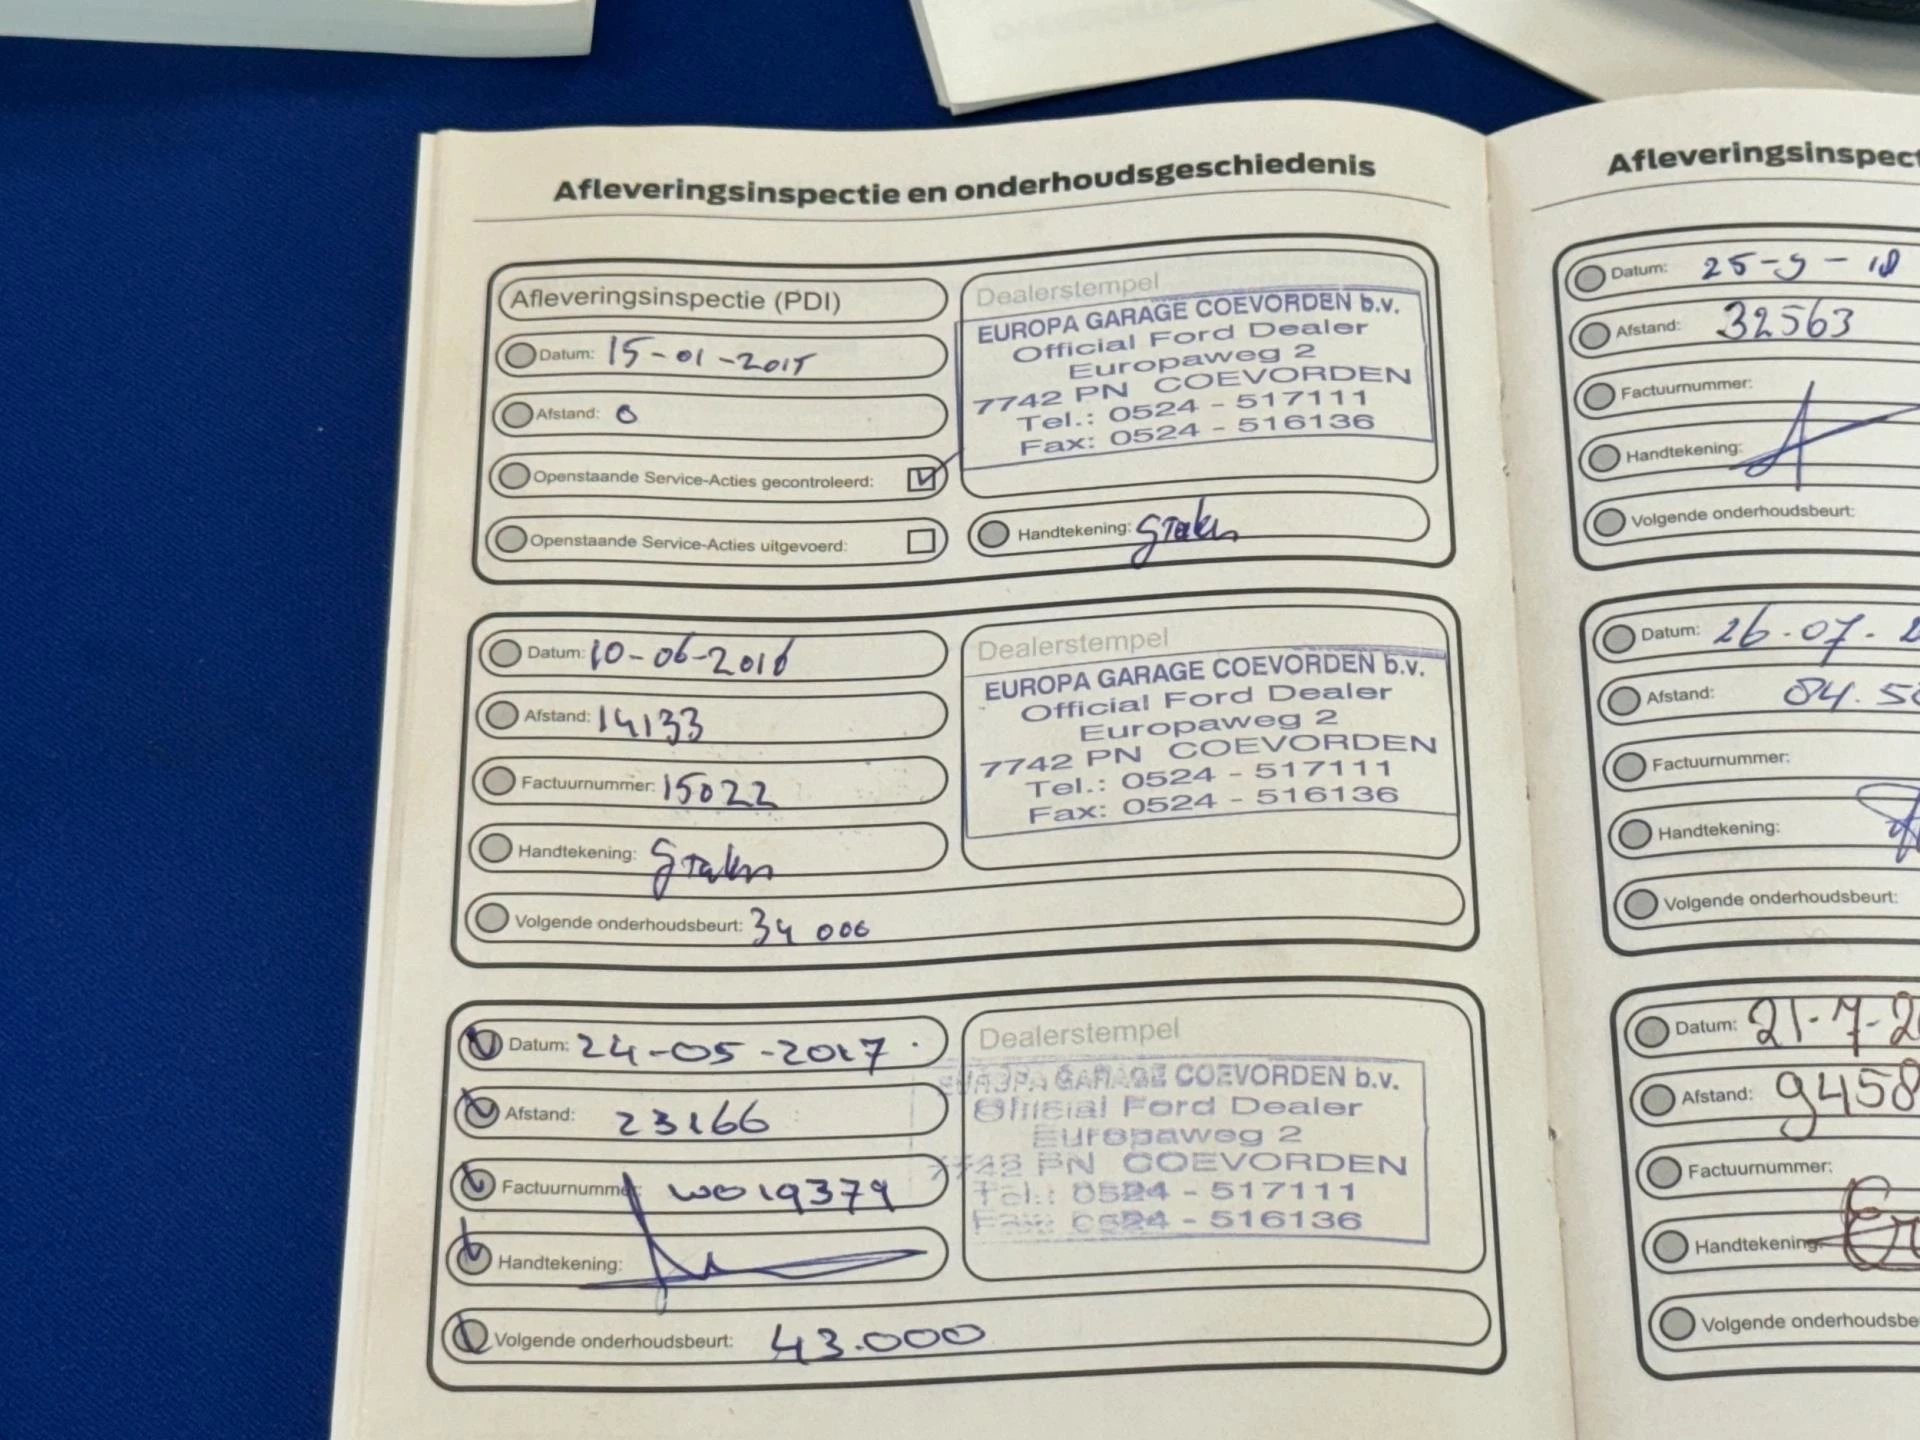 Afleveringsinspectie en onderhoudsgeschiedenis
Afleveringsinspectie (PDI)
Datum: 15-01-2015
Afstand: 0
Openstaande Service-Acties gecontroleerd:
Openstaande Service-Acties uitgevoerd:
Dealerstempel
EUROPA GARAGE COEVORDEN b.v.
Official Ford Dealer
Europaweg 2
7742 PN COEVORDEN
Tel.: 0524 - 517111
Fax: 0524 - 516136
Handtekening:
Datum: 10-06-2016
Afstand: 14133
Factuurnummer: 15022
Handtekening:
Volgende onderhoudsbeurt: 34 000
Dealerstempel
EUROPA GARAGE COEVORDEN b.v.
Official Ford Dealer
Europaweg 2
7742 PN COEVORDEN
Tel.: 0524 - 517111
Fax: 0524 - 516136
Datum: 24-05-2017
Afstand: 23166
Factuurnummer: WO19379
Handtekening:
Volgende onderhoudsbeurt: 43.000
Dealerstempel
EUROPA GARAGE COEVORDEN b.v.
Official Ford Dealer
Europaweg 2
7742 PN COEVORDEN
Tel.: 0524 - 517111
Fax: 0524 - 516136
Afleveringsinspect
Datum: 25-9-18
Afstand: 32563
Factuurnummer:
Handtekening:
Volgende onderhoudsbeurt:
Datum: 26.07.2
Afstand: 84.5
Factuurnummer:
Handtekening:
Volgende onderhoudsbeurt:
Datum: 21-7-20
Afstand: 9458
Factuurnummer:
Handtekening:
Volgende onderhoudsbe